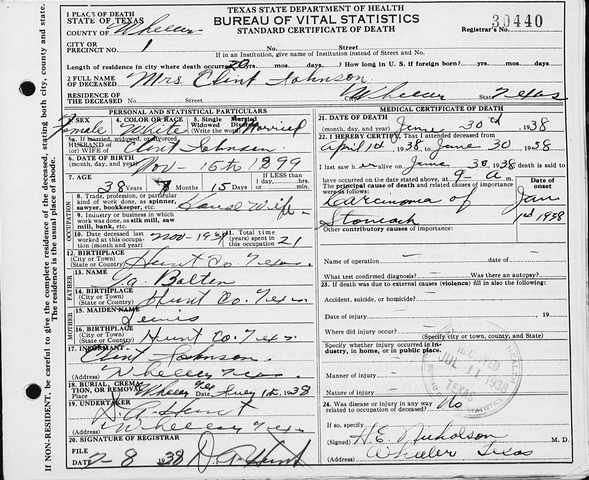 TEXAS STATE DEPARTMENT OF HEALTH
BUREAU OF VITAL STATISTICS
STANDARD CERTIFICATE OF DEATH
30440
Registrar's No.
1 PLACE OF DEATH
STATE OF TEXAS
COUNTY OF Wheeler
CITY OR
PRECINCT NO. 1
No. Street
If in an Institution, give name of Institution instead of Street and No.
Length of residence in city where death occurred 20 yrs. mos. days. How long in U. S. if foreign born? yrs. mos. days.
2 FULL NAME
OF DECEASED Mrs Clint Johnson
RESIDENCE OF
THE DECEASED No. Street City Wheeler State Texas
PERSONAL AND STATISTICAL PARTICULARS
3. SEX
Female
4. COLOR OR RACE
White
5. Single Married
Widowed Divorced
(Write the word) Married
5a. If married, widowed, or divorced
HUSBAND OF
(or) WIFE OF Clint Johnson
6. DATE OF BIRTH
Nov- 15th 1899
7. AGE
38 Years 7 Months 15 Days
If LESS than
1 day,
hrs.
min.
OCCUPATION
8 Trade, profession, or particular
kind of work done, as spinner,
sawyer, bookkeeper, etc. House Wife
9 Industry or business in which
work was done, as silk mill, saw
mill, bank, etc.
10. Date deceased last
worked at this occupa-
tion (month and year)
11. Total time (years)
spent in this
occupation 21
12. BIRTHPLACE
(City or Town)
(State or Country) Hunt Co Texas
FATHER
13. NAME
Bolten
14. BIRTHPLACE
(City or Town)
(State or Country) Hunt Co. Texas
MOTHER
15. MAIDEN NAME
Lewis
16. BIRTHPLACE
(City or Town)
(State or Country) Hunt Co. Texas
17. INFORMANT
Clint Johnson
(Address) Wheeler Texas
18. BURIAL, CREMA-
TION OR REMOVAL
Place Wheeler Tex Date July 1st, 1938
19. UNDERTAKER
D. A. Hunt
(Address) Wheeler Texas
20. SIGNATURE OF REGISTRAR
FILE
7-8 1938 D. A. Hunt
MEDICAL CERTIFICATE OF DEATH
21. DATE OF DEATH
(month, day, and year) June 30th 1938
22. I HEREBY CERTIFY, That I attended deceased from
April 1st 1938, to June 30 1938
I last saw her alive on June 30, 1938 death is said to
have occurred on the date stated above, at 9- a. m.
The principal cause of death and related causes of importance
were as follows:
Date of onset
Carcinoma of
Stomach
Jan 1st 1938
Other contributory causes of importance:
Name of operation
date of
What test confirmed diagnosis? Was there an autopsy?
23. If death was due to external causes (violence) fill in also the
following:
Accident, suicide, or homicide?
Date of injury , 19
Where did injury occur?
(Specify city or town, county, and State)
Specify whether injury occurred in in-
dustry, in home, or in public place.
Manner of injury
Nature of injury
24. Was disease or injury in any way
related to occupation of deceased? No
If so, specify
(Signed) H. E. Nicholson M. D.
(Address) Wheeler Texas
RECEIVED
JUL 11 1938
TEXAS
IF NON-RESIDENT, be careful to give the complete residence of the deceased, stating both city, county and state.
The residence is the usual place of abode.